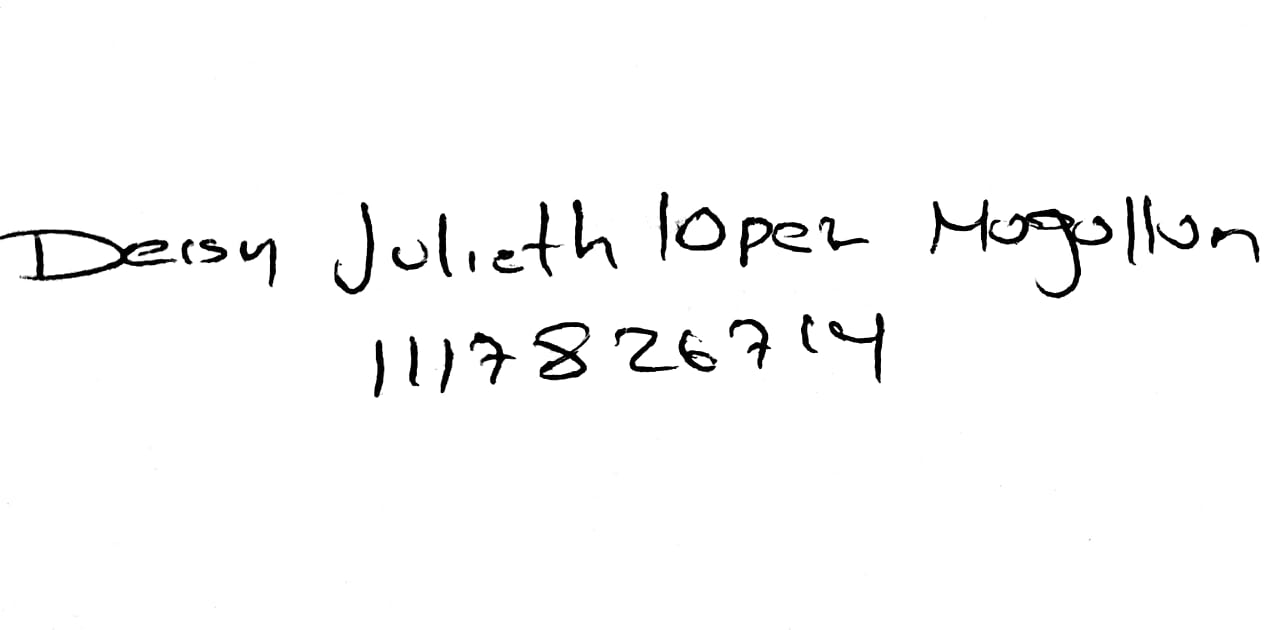 Deisy Julieth lopez Mogollon
1117826714